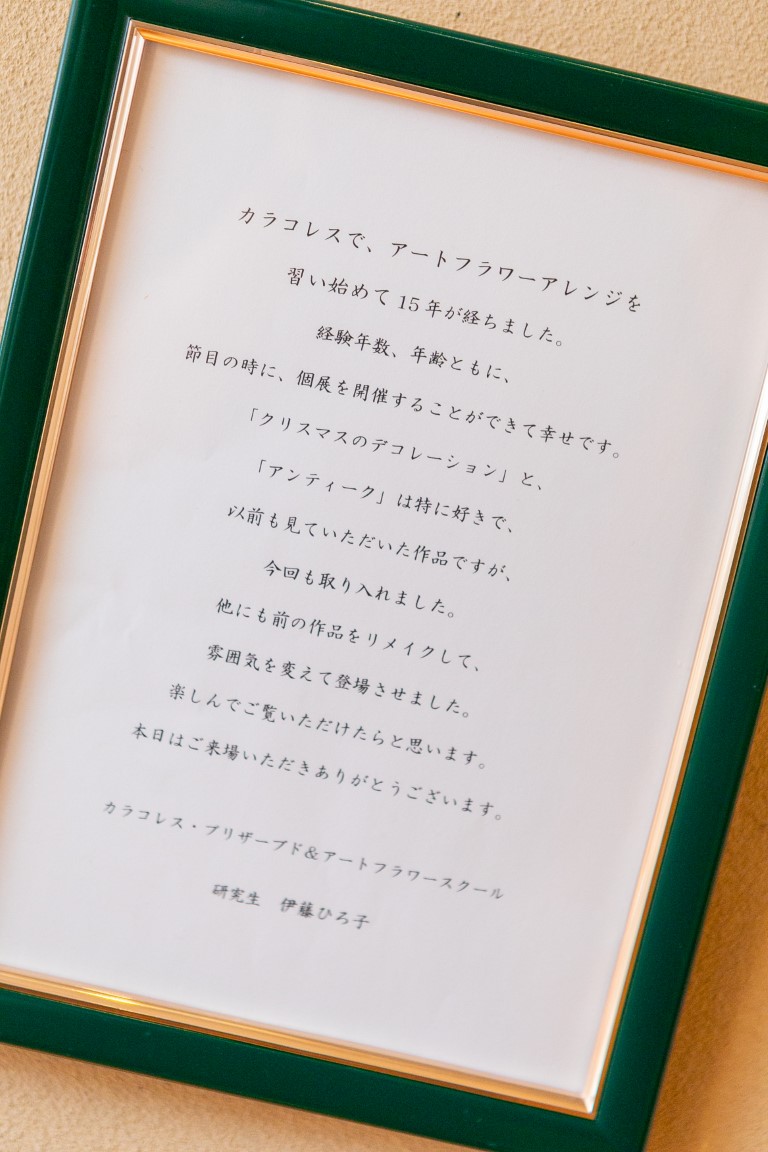 カラコレスで、アートフラワーアレンジを
習い始めて 15 年が経ちました。
経験年数、年齢ともに、
節目の時に、個展を開催することができて幸せです。
「クリスマスのデコレーション」と、
「アンティーク」は特に好きで、
以前も見ていただいた作品ですが、
今回も取り入れました。
他にも前の作品をリメイクして、
雰囲気を変えて登場させました。
楽しんでご覧いただけたらと思います。
本日はご来場いただきありがとうございます。
カラコレス・プリザーブド&アートフラワースクール
研究生　伊藤ひろ子